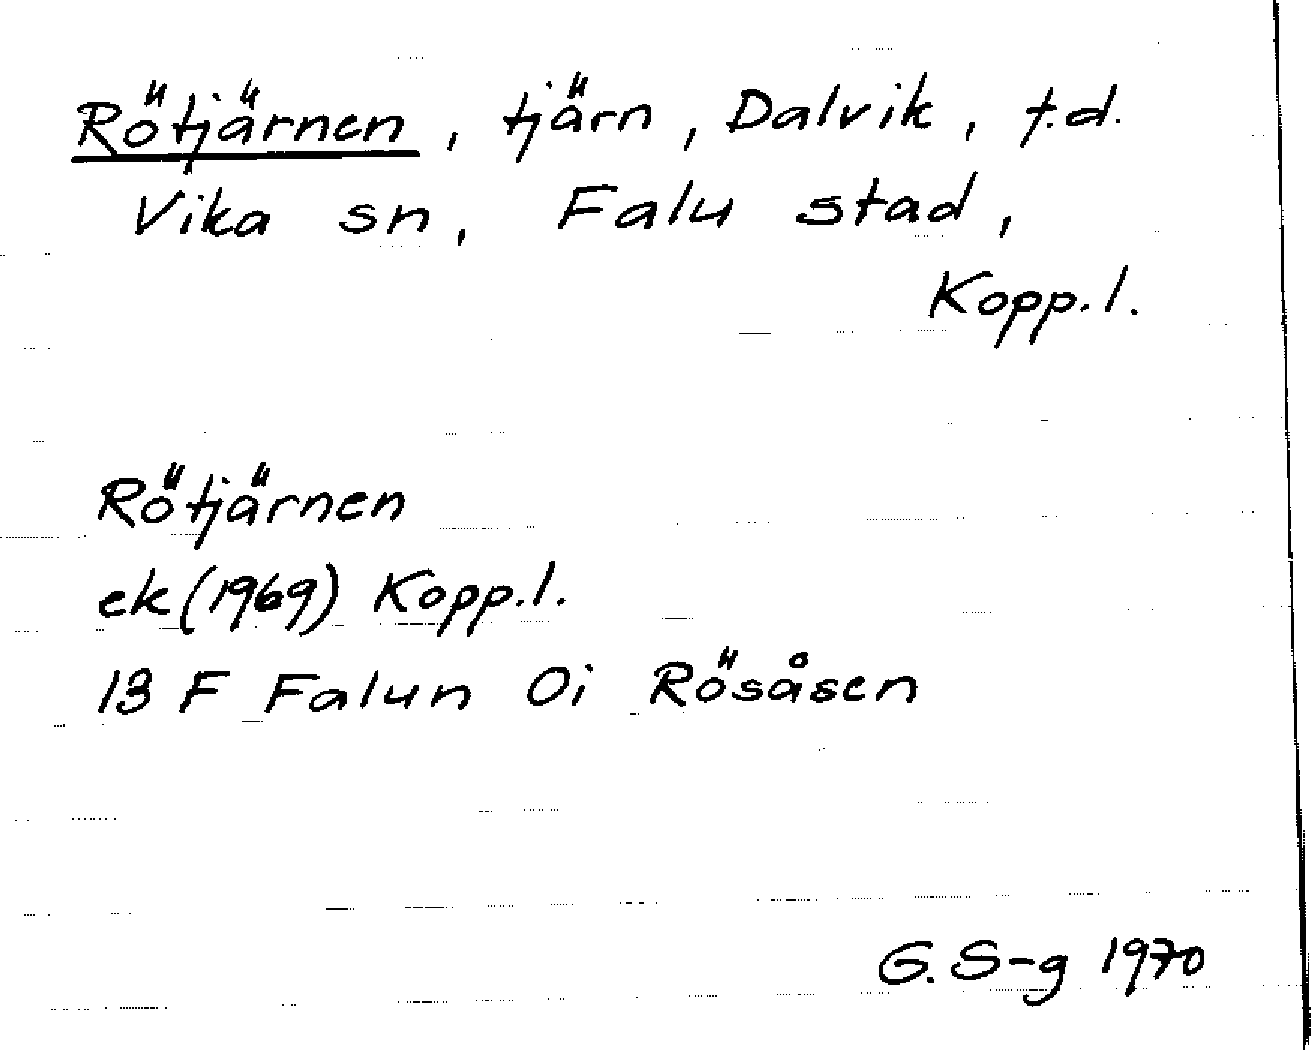 Rötjärnen, tjärn, Dalvik, f.d.
Vika sn, Falu stad,
Kopp.l.
Rötjärnen
ek (1969) Kopp.l.
13 F Falun 0i Rösåsen
G. S-g 1970